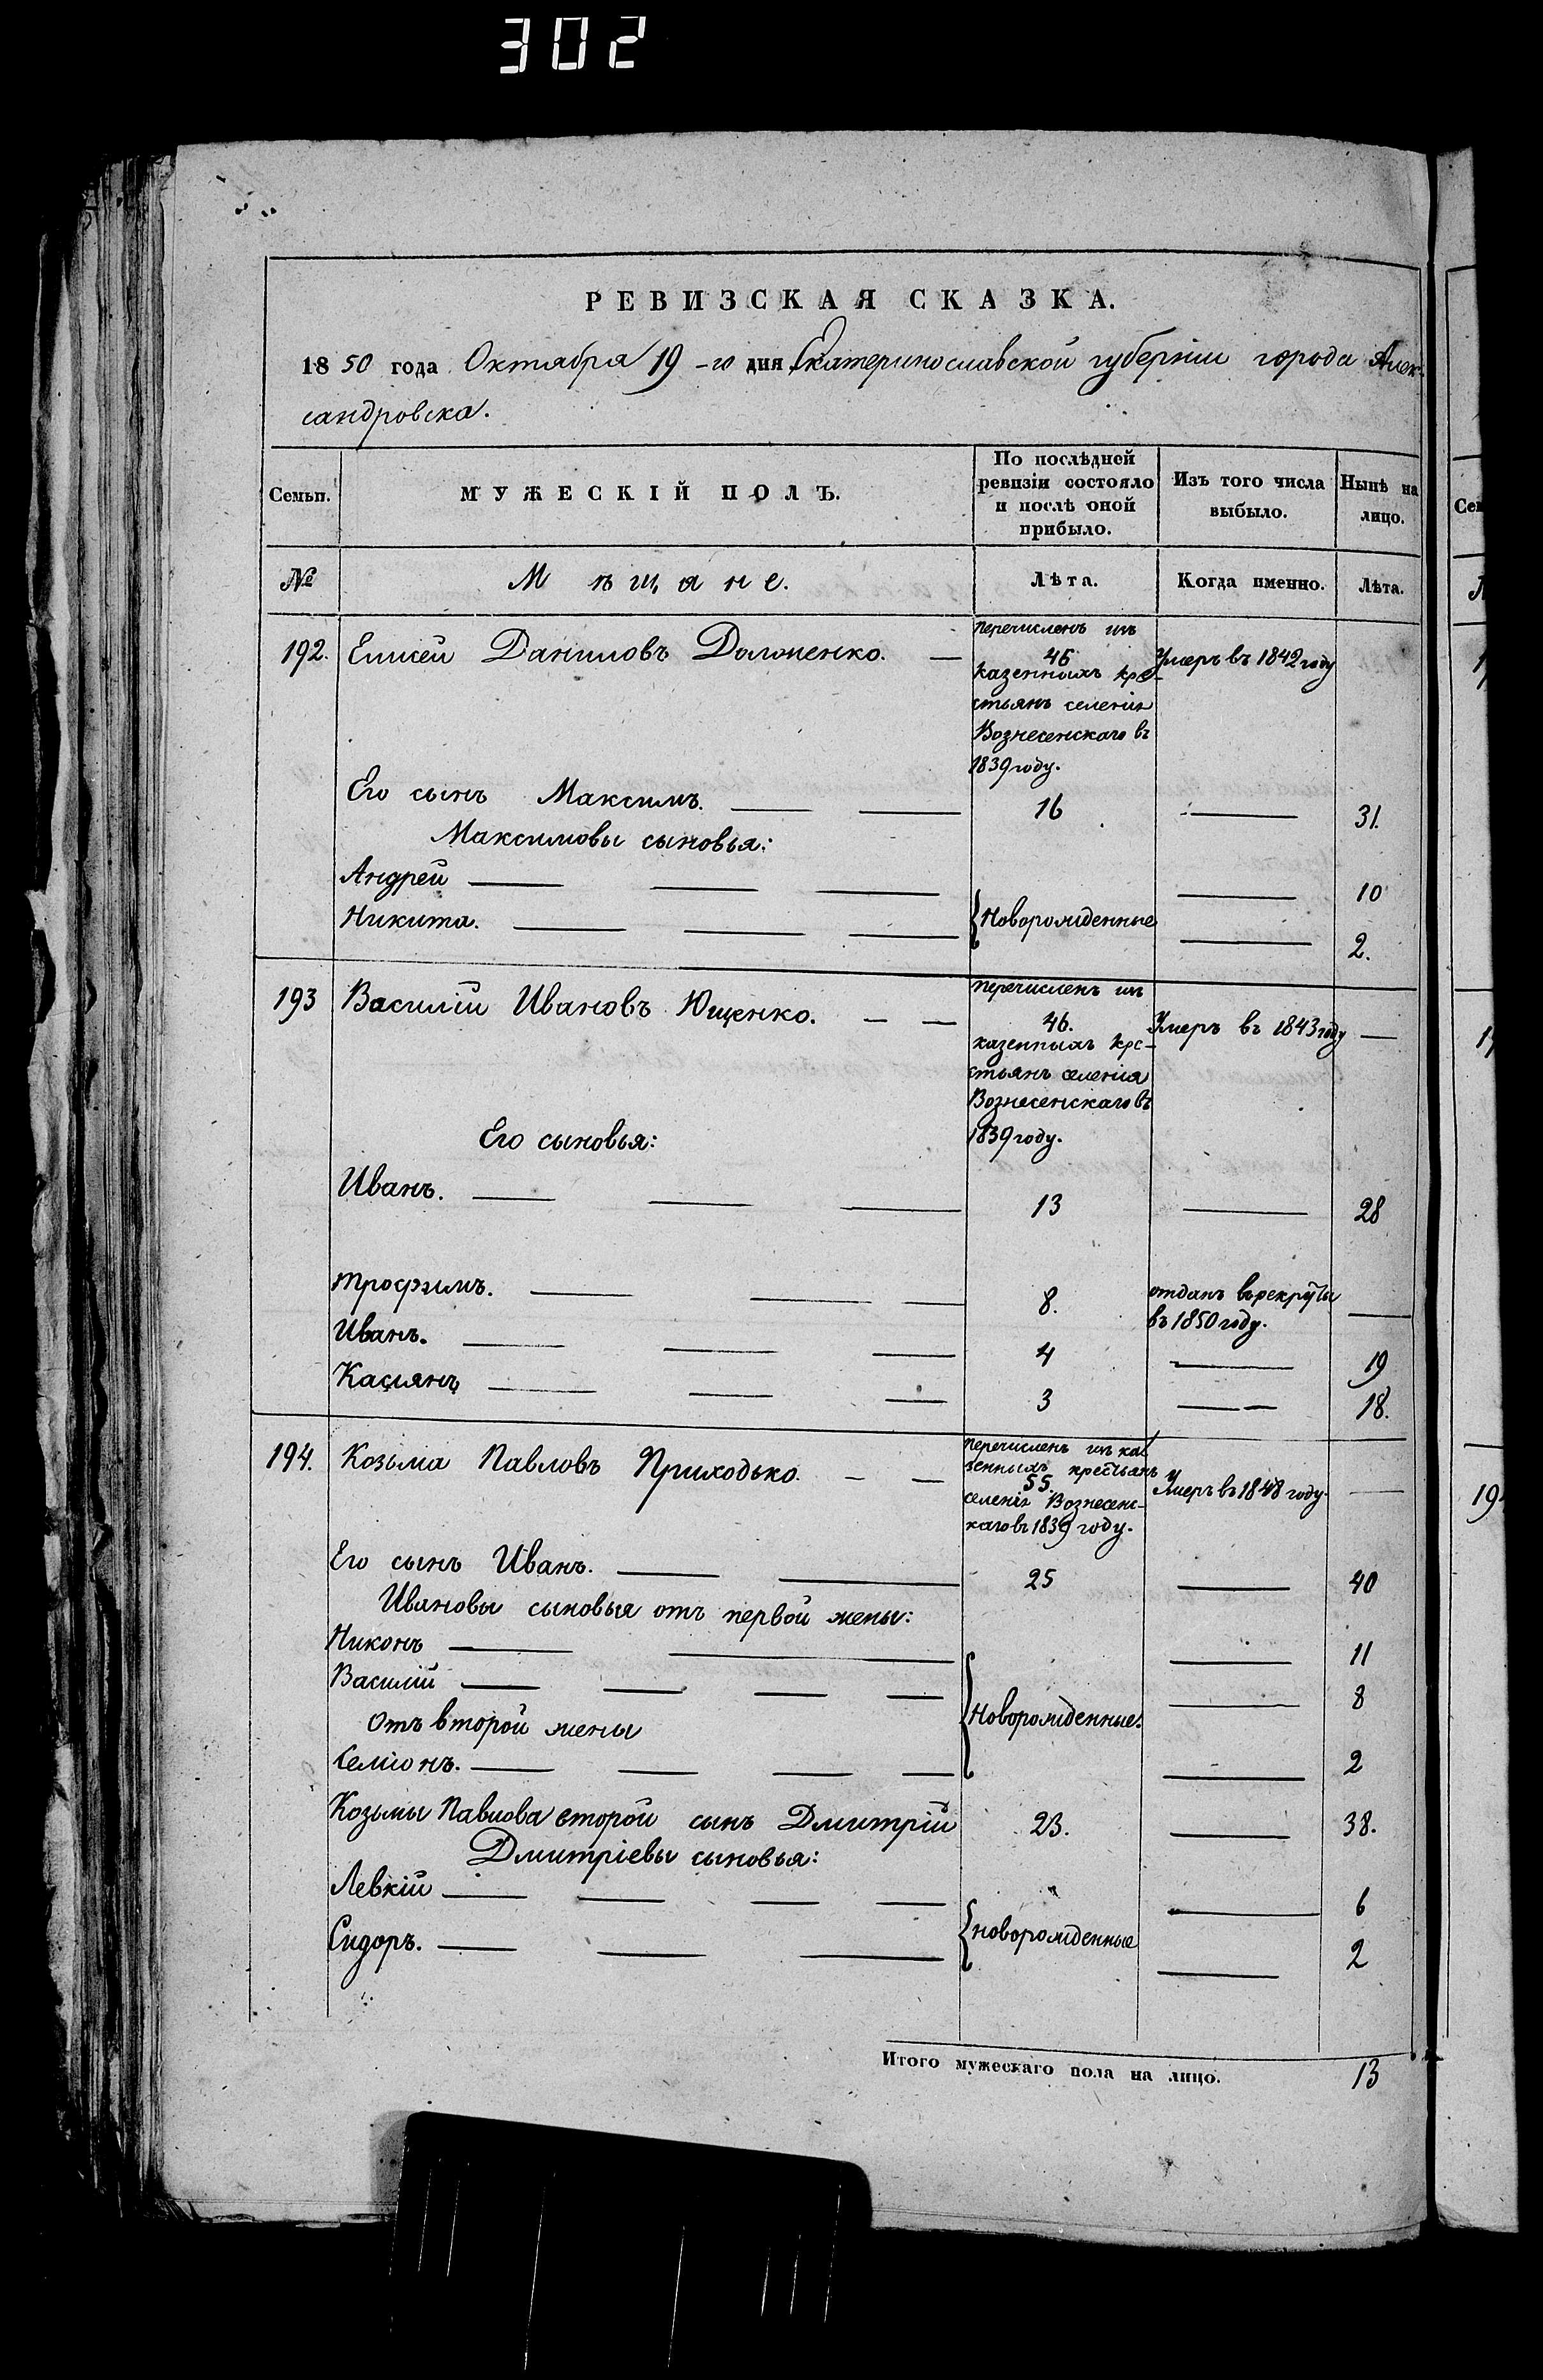 302
РЕВИЗСКАЯ СКАЗКА.
1850 года Октября 19-го дня Екатеринославской губерніи города Алек-
сандровска.
Семьи.
МУЖЕСКІЙ ПОЛЪ.
По послѣдней
ревизіи состояло
и послѣ оной
прибыло.
Изъ того числа
выбыло.
Нынѣ на
лицо.
№
Мѣщане.
Лѣта.
Когда именно.
Лѣта.
192. Елисей Даниловъ
перечисленъ изъ
46
казенныхъ кре-
стьянъ селенія
Вознесенскаго въ
1839 году.
Умеръ въ 1842 году
Его сынъ Максимъ. 16 31.
Максимовы сыновья:
Андрей 10
Никита. Новорожденные 2.
193 Василій Ивановъ Ющенко.
перечисленъ изъ
46.
казенныхъ кре-
стьянъ селенія
Вознесенскаго въ
1839 году.
Умеръ въ 1843 году
Его сыновья:
Иванъ. 13 28
Трофимъ. 8. отданъ въ рекруты
въ 1850 году.
Иванъ. 4 19
Касіянъ 3 18.
194. Козьма Павловъ Приходько.
перечисленъ изъ ка
зенныхъ крестьянъ
55.
селенія Вознесенс-
каго въ 1839 году.
Умеръ въ 1848 году.
Его сынъ Иванъ. 25 40
Ивановы сыновья отъ первой жены:
Никонъ 11
Василій 8
Новорожденные.
Отъ второй жены
Семіонъ. 2
Козьмы Павлова второй сынъ Дмитрій 23. 38.
Дмитріевы сыновья:
Левкій 6
Сидоръ. новорожденные 2
Итого мужескаго пола на лицо. 13